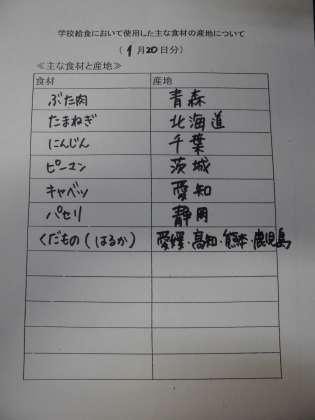 学校給食において使用した主な食材の産地について
(1月20日分)
≪主な食材と産地≫
食材 産地
ぶた肉 青森
たまねぎ 北海道
にんじん 千葉
ピーマン 茨城
キャベツ 愛知
パセリ 静岡
くだもの(はるか) 愛媛・高知・熊本・鹿児島